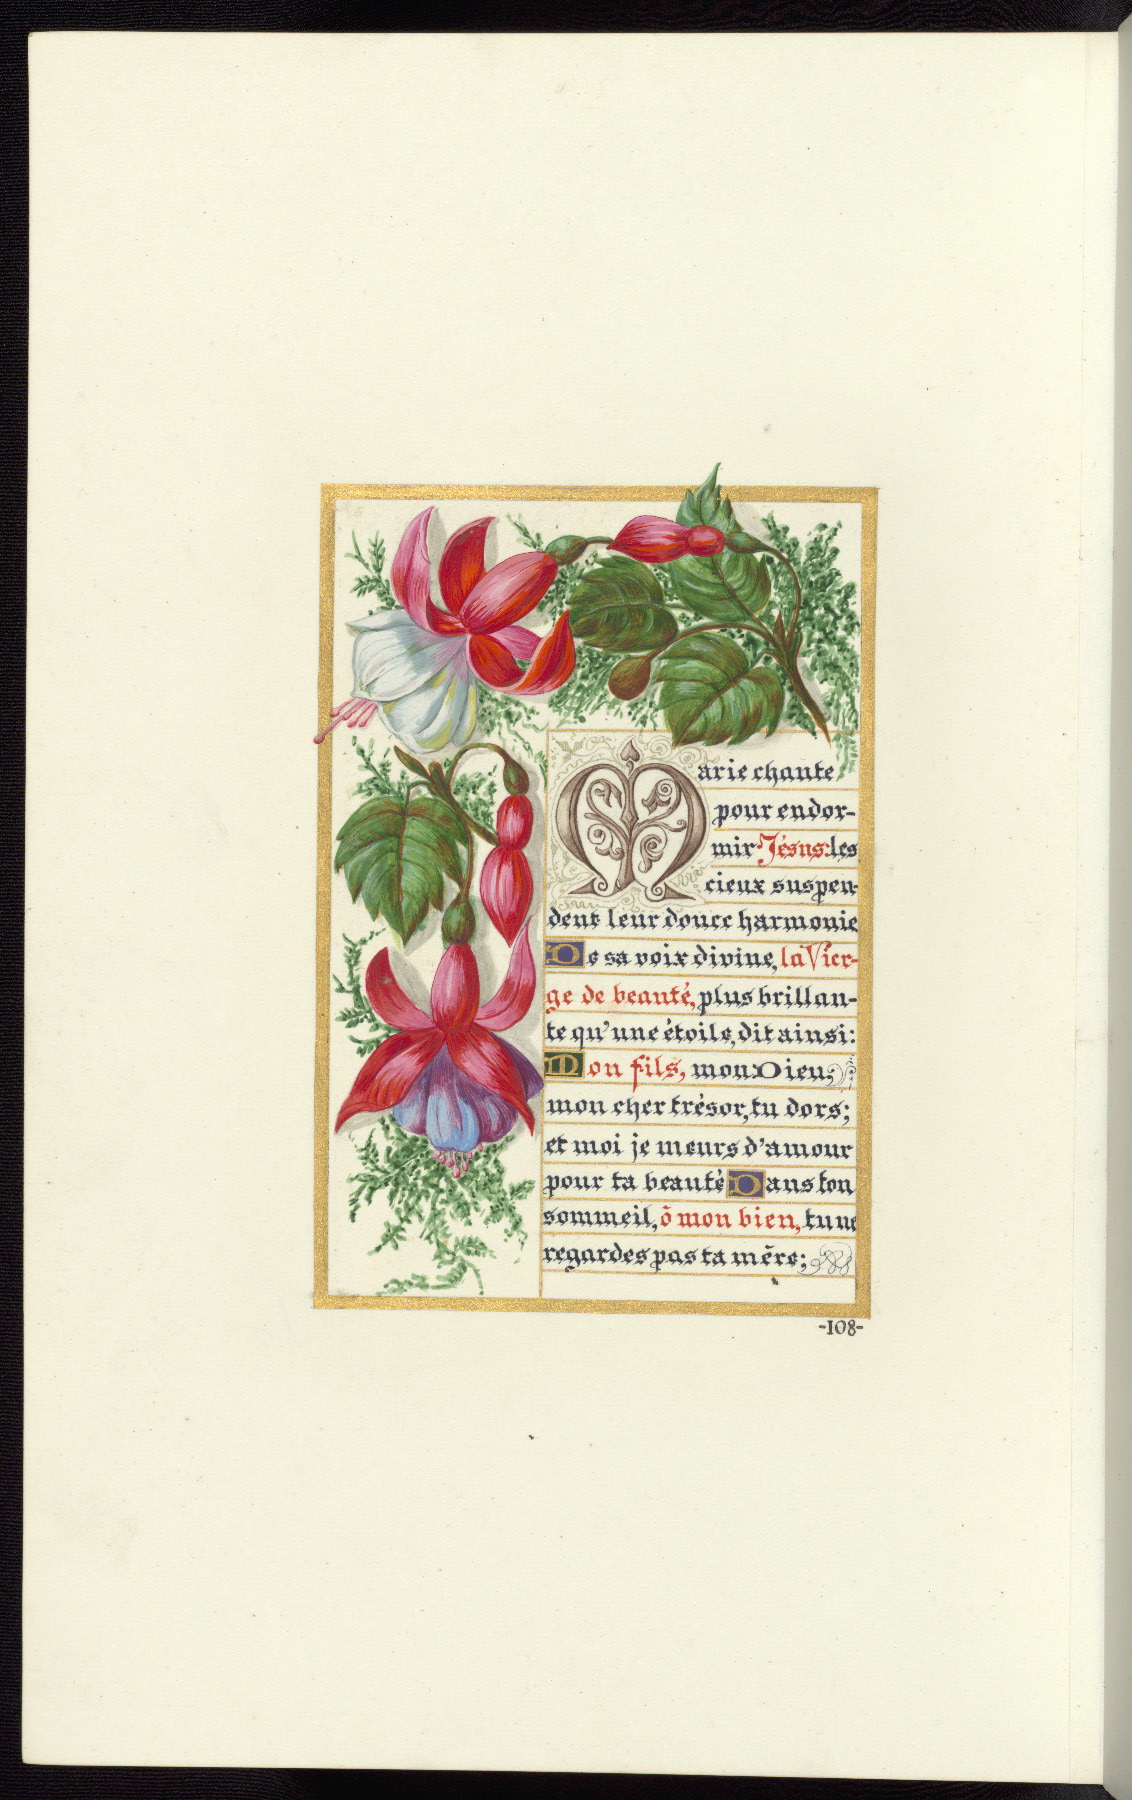 Marie chante
pour endor-
mir Jésus: les
cieux suspen-
dent leur douce harmonie
De sa voix divine, la Vier-
ge de beauté, plus brillan-
te qu'une étoile, dit ainsi:
Mon fils, mon Dieu,
mon cher trésor, tu dors;
et moi je meurs d'amour
pour ta beauté Dans ton
sommeil, ô mon bien, tu ne
regardes pas ta mère;
-108-